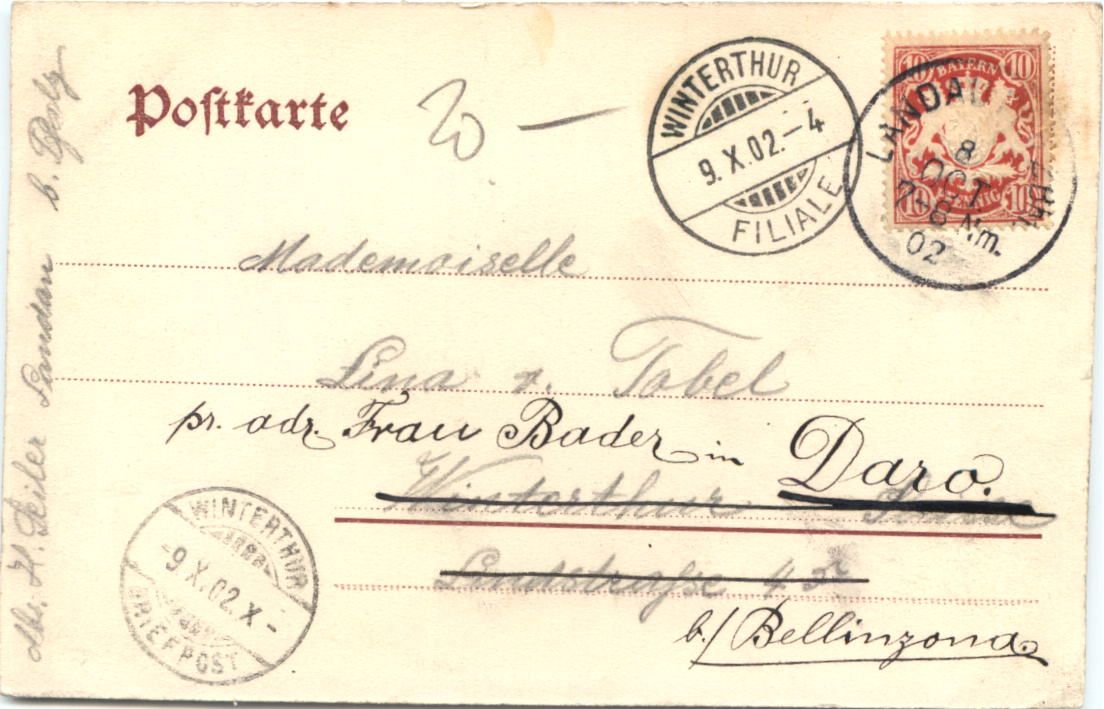 Postkarte
20 —
WINTERTHUR
9.X.02.–4
FILIALE
BAYERN
10 10
10 PFENNIG 10
LANDAU
8
OCT
7-8 Nm.
02
Mademoiselle
Lina v. Tobel
pr. adr. Frau Bader in Daro.
Winterthur
Landstraße 42
b./ Bellinzona
WINTERTHUR
-9.X.02.X-
BRIEFPOST
Abs. H. Seiler Landau